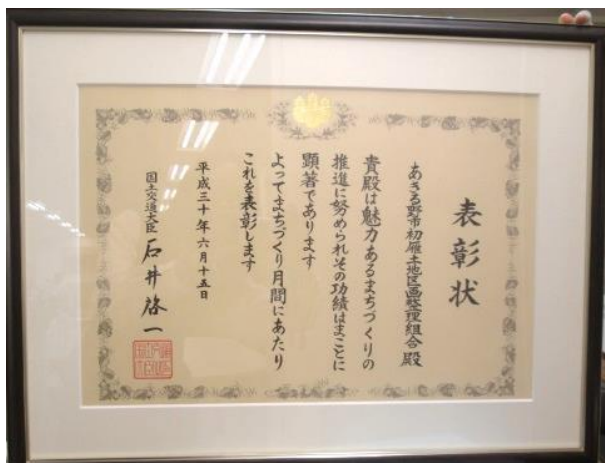 表彰状
あきる野市初雁土地区画整理組合 殿
貴殿は魅力あるまちづくりの
推進に努められその功績はまことに
顕著であります
よってまちづくり月間にあたり
これを表彰します
平成三十年六月十五日
国土交通大臣 石井啓一